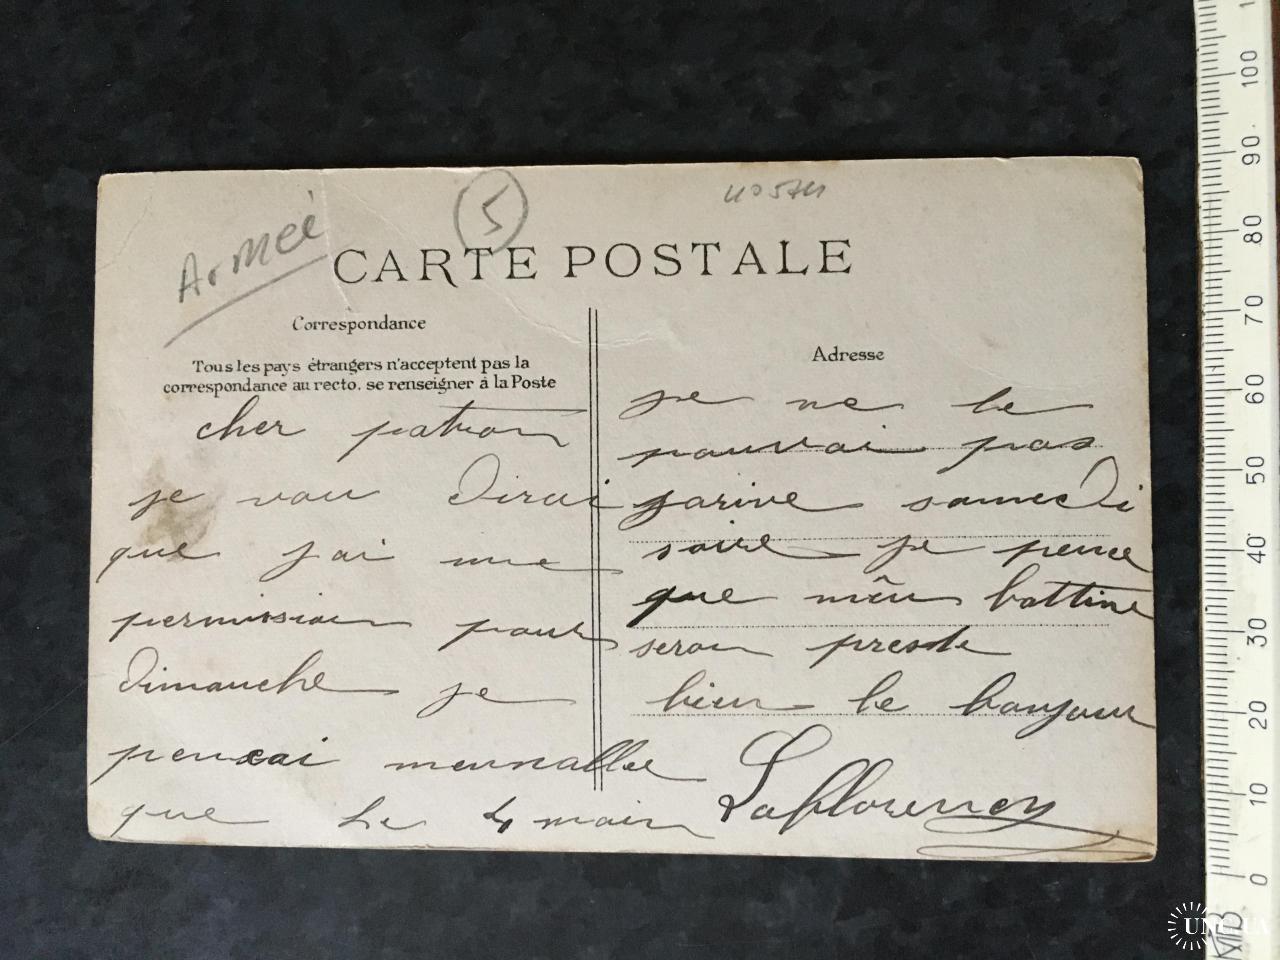 Armée
5
CARTE POSTALE
Correspondance
Tous les pays étrangers n'acceptent pas la
correspondance au recto. se renseigner à la Poste
cher patron
je vou dirai
que jai une
permision pour
dimanche je
pencai mennallee
que le 4 main
Adresse
je ne le
pouvai pas
jarive samedi
soire je pence
que mên bottine
seron preste
bien le bonjour
0
10
20
30
40
50
60
70
80
90
100
UNC.UA